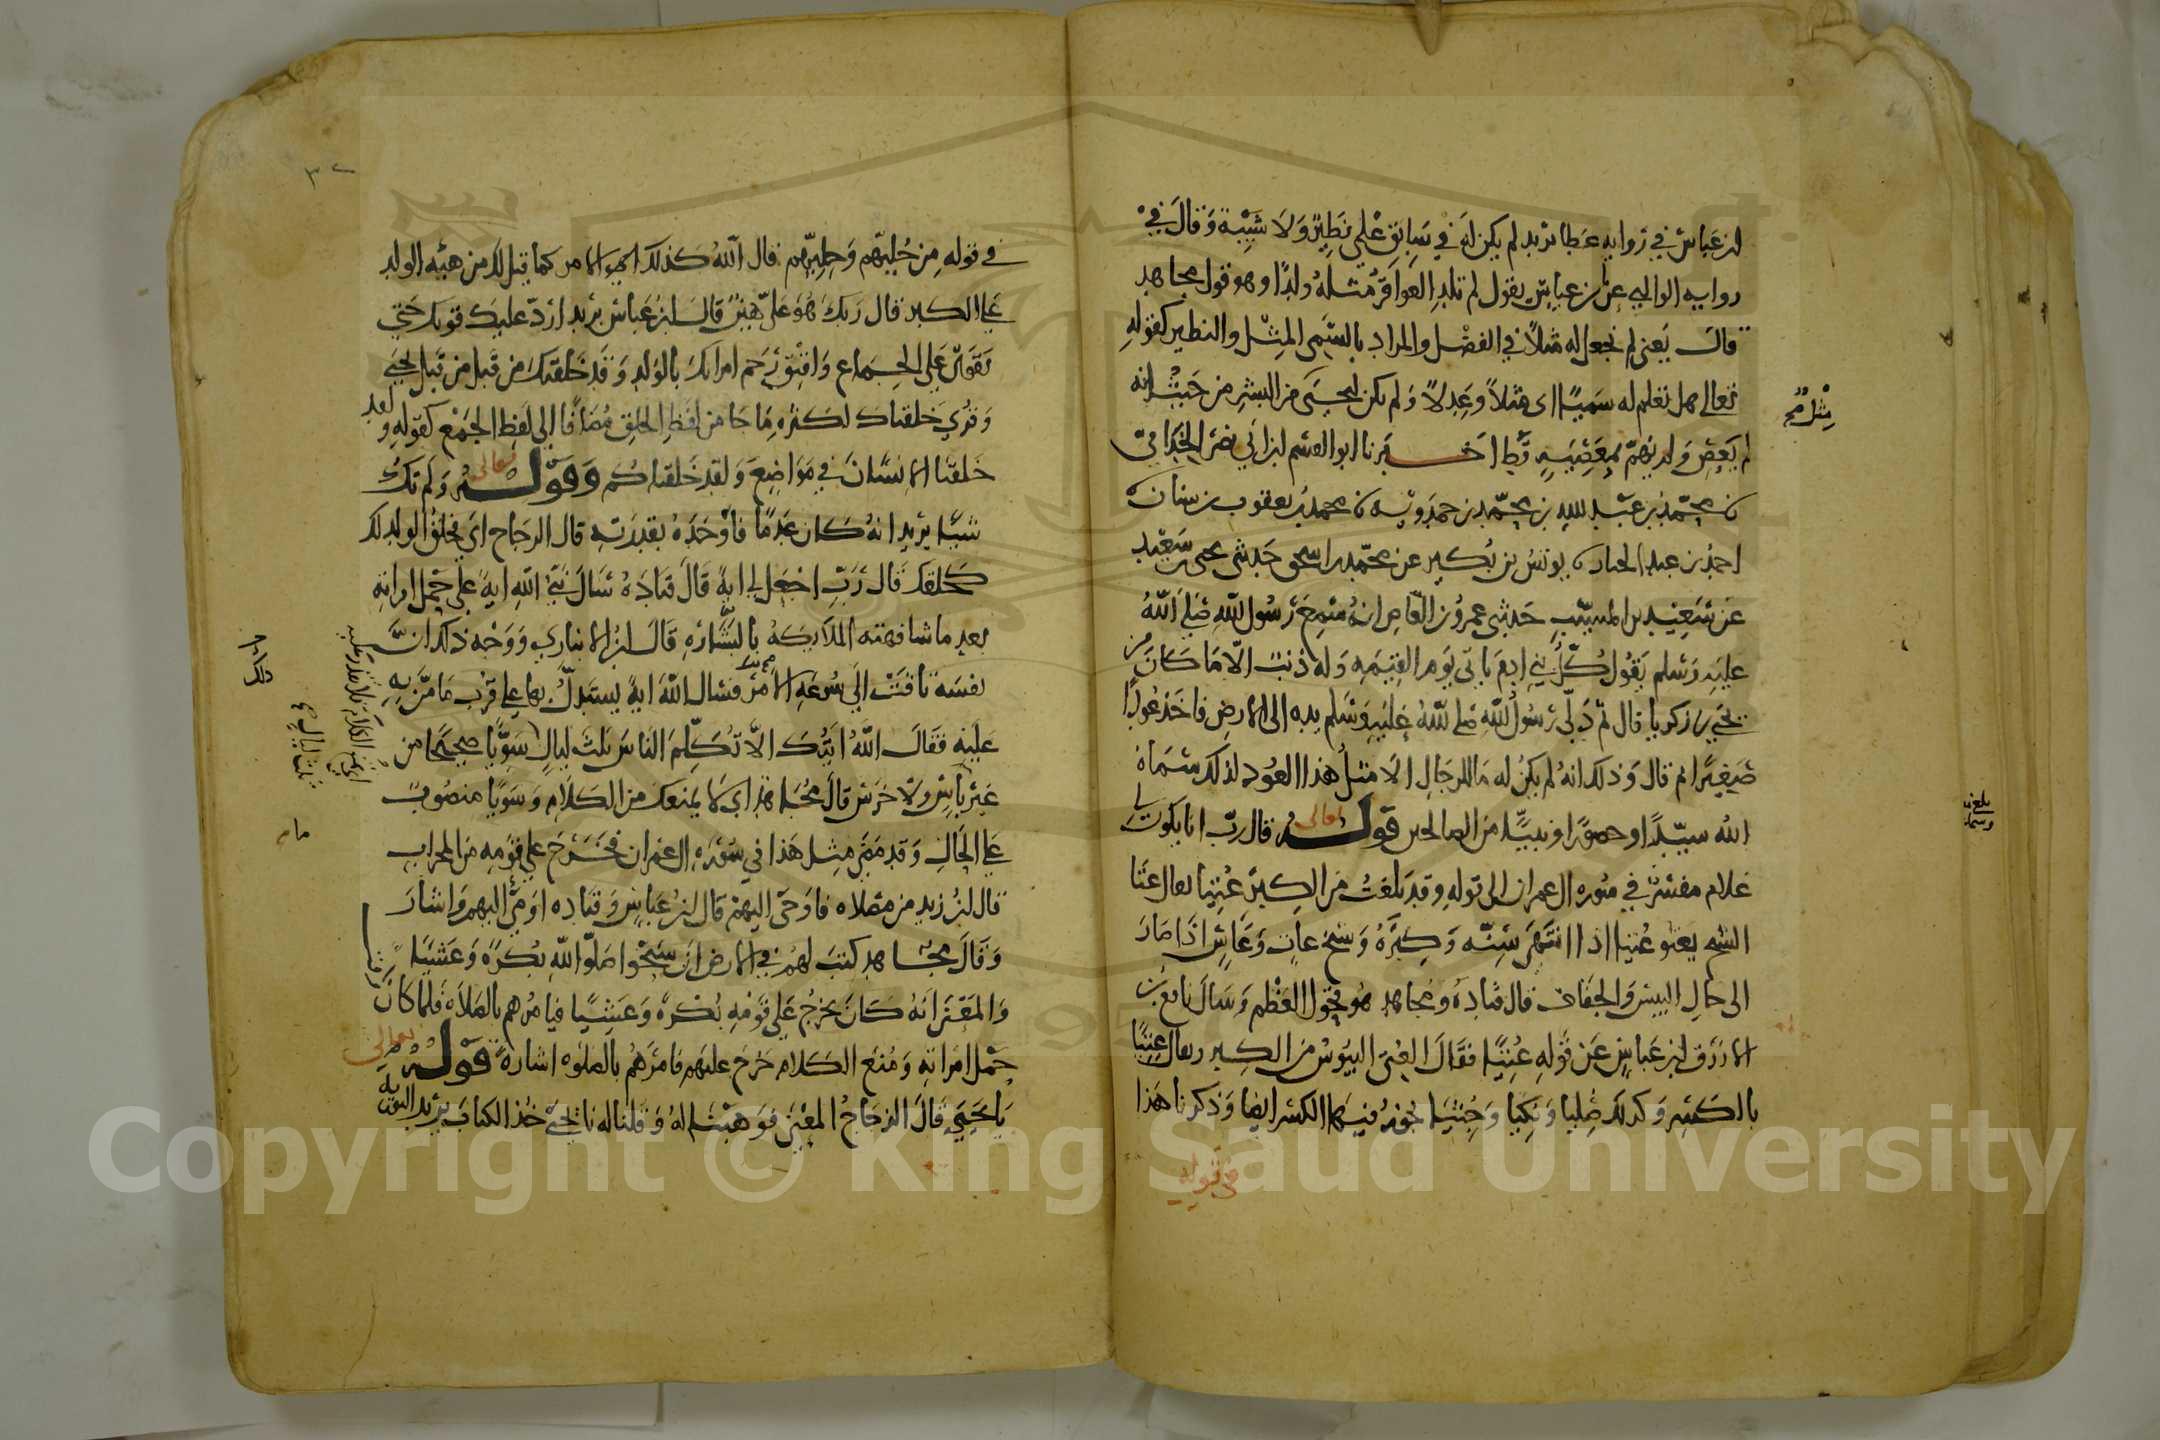 ابن عباس في رواية عطا يريد لم يكن له في سابق علمي نظير ولا شبيه وقال في
رواية الوالبي عن ابن عباس يقول لم تلد العواقر مثله ولدا وهو قول مجاهد
قال يعني لم نجعل له مثلا في الفضل والمراد بالسمي المثل والنظير كقوله
تعالى هل تعلم له سميا اي مثلا وعدلا ولم يكن ليحيى من البشر من حيث انه
لم يعص ولم يهم بمعصية قط اخبرنا ابو القسم ابن ابي نصر الخذامي
ن محمد بن عبد الله بن محمد بن حمدويه ن محمد بن يعقوب بن سنان ن
احمد بن عبد الجبار ن يونس بن بكير عن محمد بن اسحق حدثني يحيى بن سعيد
عن سعيد بن المسيب حدثني عمرو بن العاص انه سمع رسول الله صلى الله
عليه وسلم يقول كل بني ادم ياتي يوم القيمة وله ذنب الا ما كان من
يحيى بن زكريا قال ثم دلى رسول الله صلى الله عليه وسلم يده الى الارض فاخذ عودا
صغيرا ثم قال وذلك انه لم يكن له ما للرجال الا مثل هذا العود لذلك سماه
الله سيدا وحصورا ونبيا من الصالحين قوله تعالى قال رب انا يكون لي
غلام مفسر في سورة ال عمران الى قوله وقد بلغت من الكبر عتيا يقال عتا
الشيخ يعتو عتيا اذا انتهى سنه وكبره وشيخ عات وعاس اذا صار
الى حال اليبس والجفاف قال قتادة ومجاهد هو نحول العظم وسال نافع بن
الازرق ابن عباس عن قوله عتيا فقال العتي اليبوس من الكبر ويقال عتيا
بالكسر وكذلك صليا وبكيا وجثيا يجوز فيها الكسر ايضا وذكرنا هذا
في قوله
مثل صح
في قوله من حليهم وحليهم قال الله كذلك اي الامر كما قيل لك من هبة الولد
على الكبر قال ربك هو علي هين قال ابن عباس يريد ارد عليك قوتك حتى
تقوى على الجماع وافتق رحم امراتك بالولد وقد خلقتك من قبل من قبل يحيى
وقري خلقناك لكثرة ما جا من لفظ الخلق مضافا الى لفظ الجمع كقوله ولقد
خلقنا الانسان في مواضع ولقد خلقناكم وقوله تعالى ولم تك
شيئا يريد انه كان عدما فاوجده بقدرته قال الزجاج اي فخلق الولد لك
كخلقك قال رب اجعل لي اية قال قتادة سال نبي الله اية على حمل امراته
بعد ما شافهته الملائكة بالبشارة قال ابن الانباري ووجه ذلك ان
نفسه تاقت الى سرعة الامر فسال الله اية يستدل بها على قرب ما من به
عليه فقال الله ايتك الا تكلم الناس ثلث ليال سويا صحيحا من
غير باس ولا خرس قال مجاهد اي لا يمنعك من الكلام وسويا منصوب
على الحال وقد مضى مثل هذا في سورة ال عمران فخرج على قومه من المحراب
قال ابن زيد من مصلاه فاوحى اليهم قال ابن عباس وقتادة اومى اليهم واشار
وقال مجاهد كتب لهم في الارض ان سبحوا صلوا لله بكرة وعشيا
والمعنى انه كان يخرج على قومه بكرة وعشيا فيامرهم بالصلاة فلما كان
حمل امراته ومنع الكلام خرج عليهم فامرهم بالصلوة اشارة قوله تعالى
يا يحيى قال الزجاج المعنى فوهبنا له وقلنا له يا يحيى خذ الكتاب يريد التورية
ثلث ليال
ذلك
Copyright © King Saud University